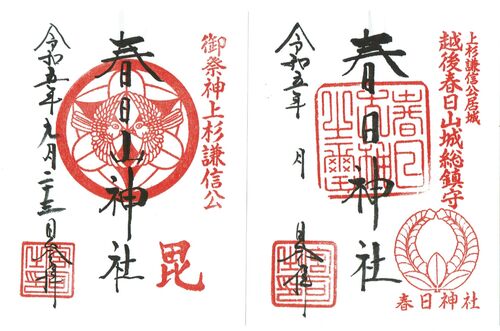 御祭神上杉謙信公
毘
春日山神社
令和五年九月二十三日
上杉謙信公居城
越後春日山城総鎮守
春日神社
春日神社
令和五年 月 日